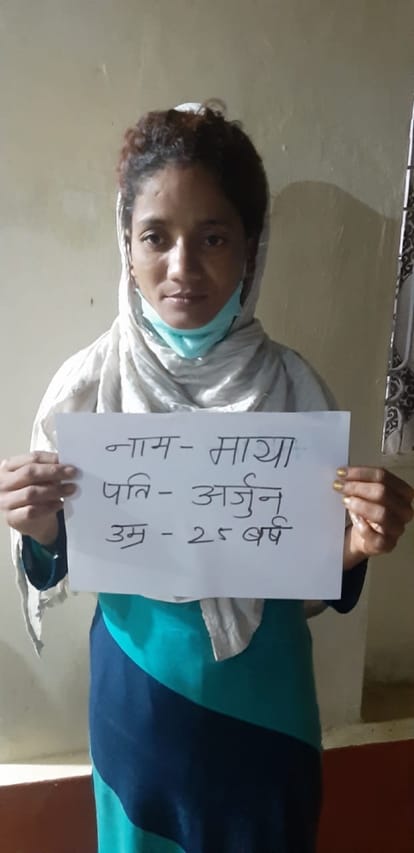 नाम - माया
पति - अर्जुन
उम्र - 25 बर्ष